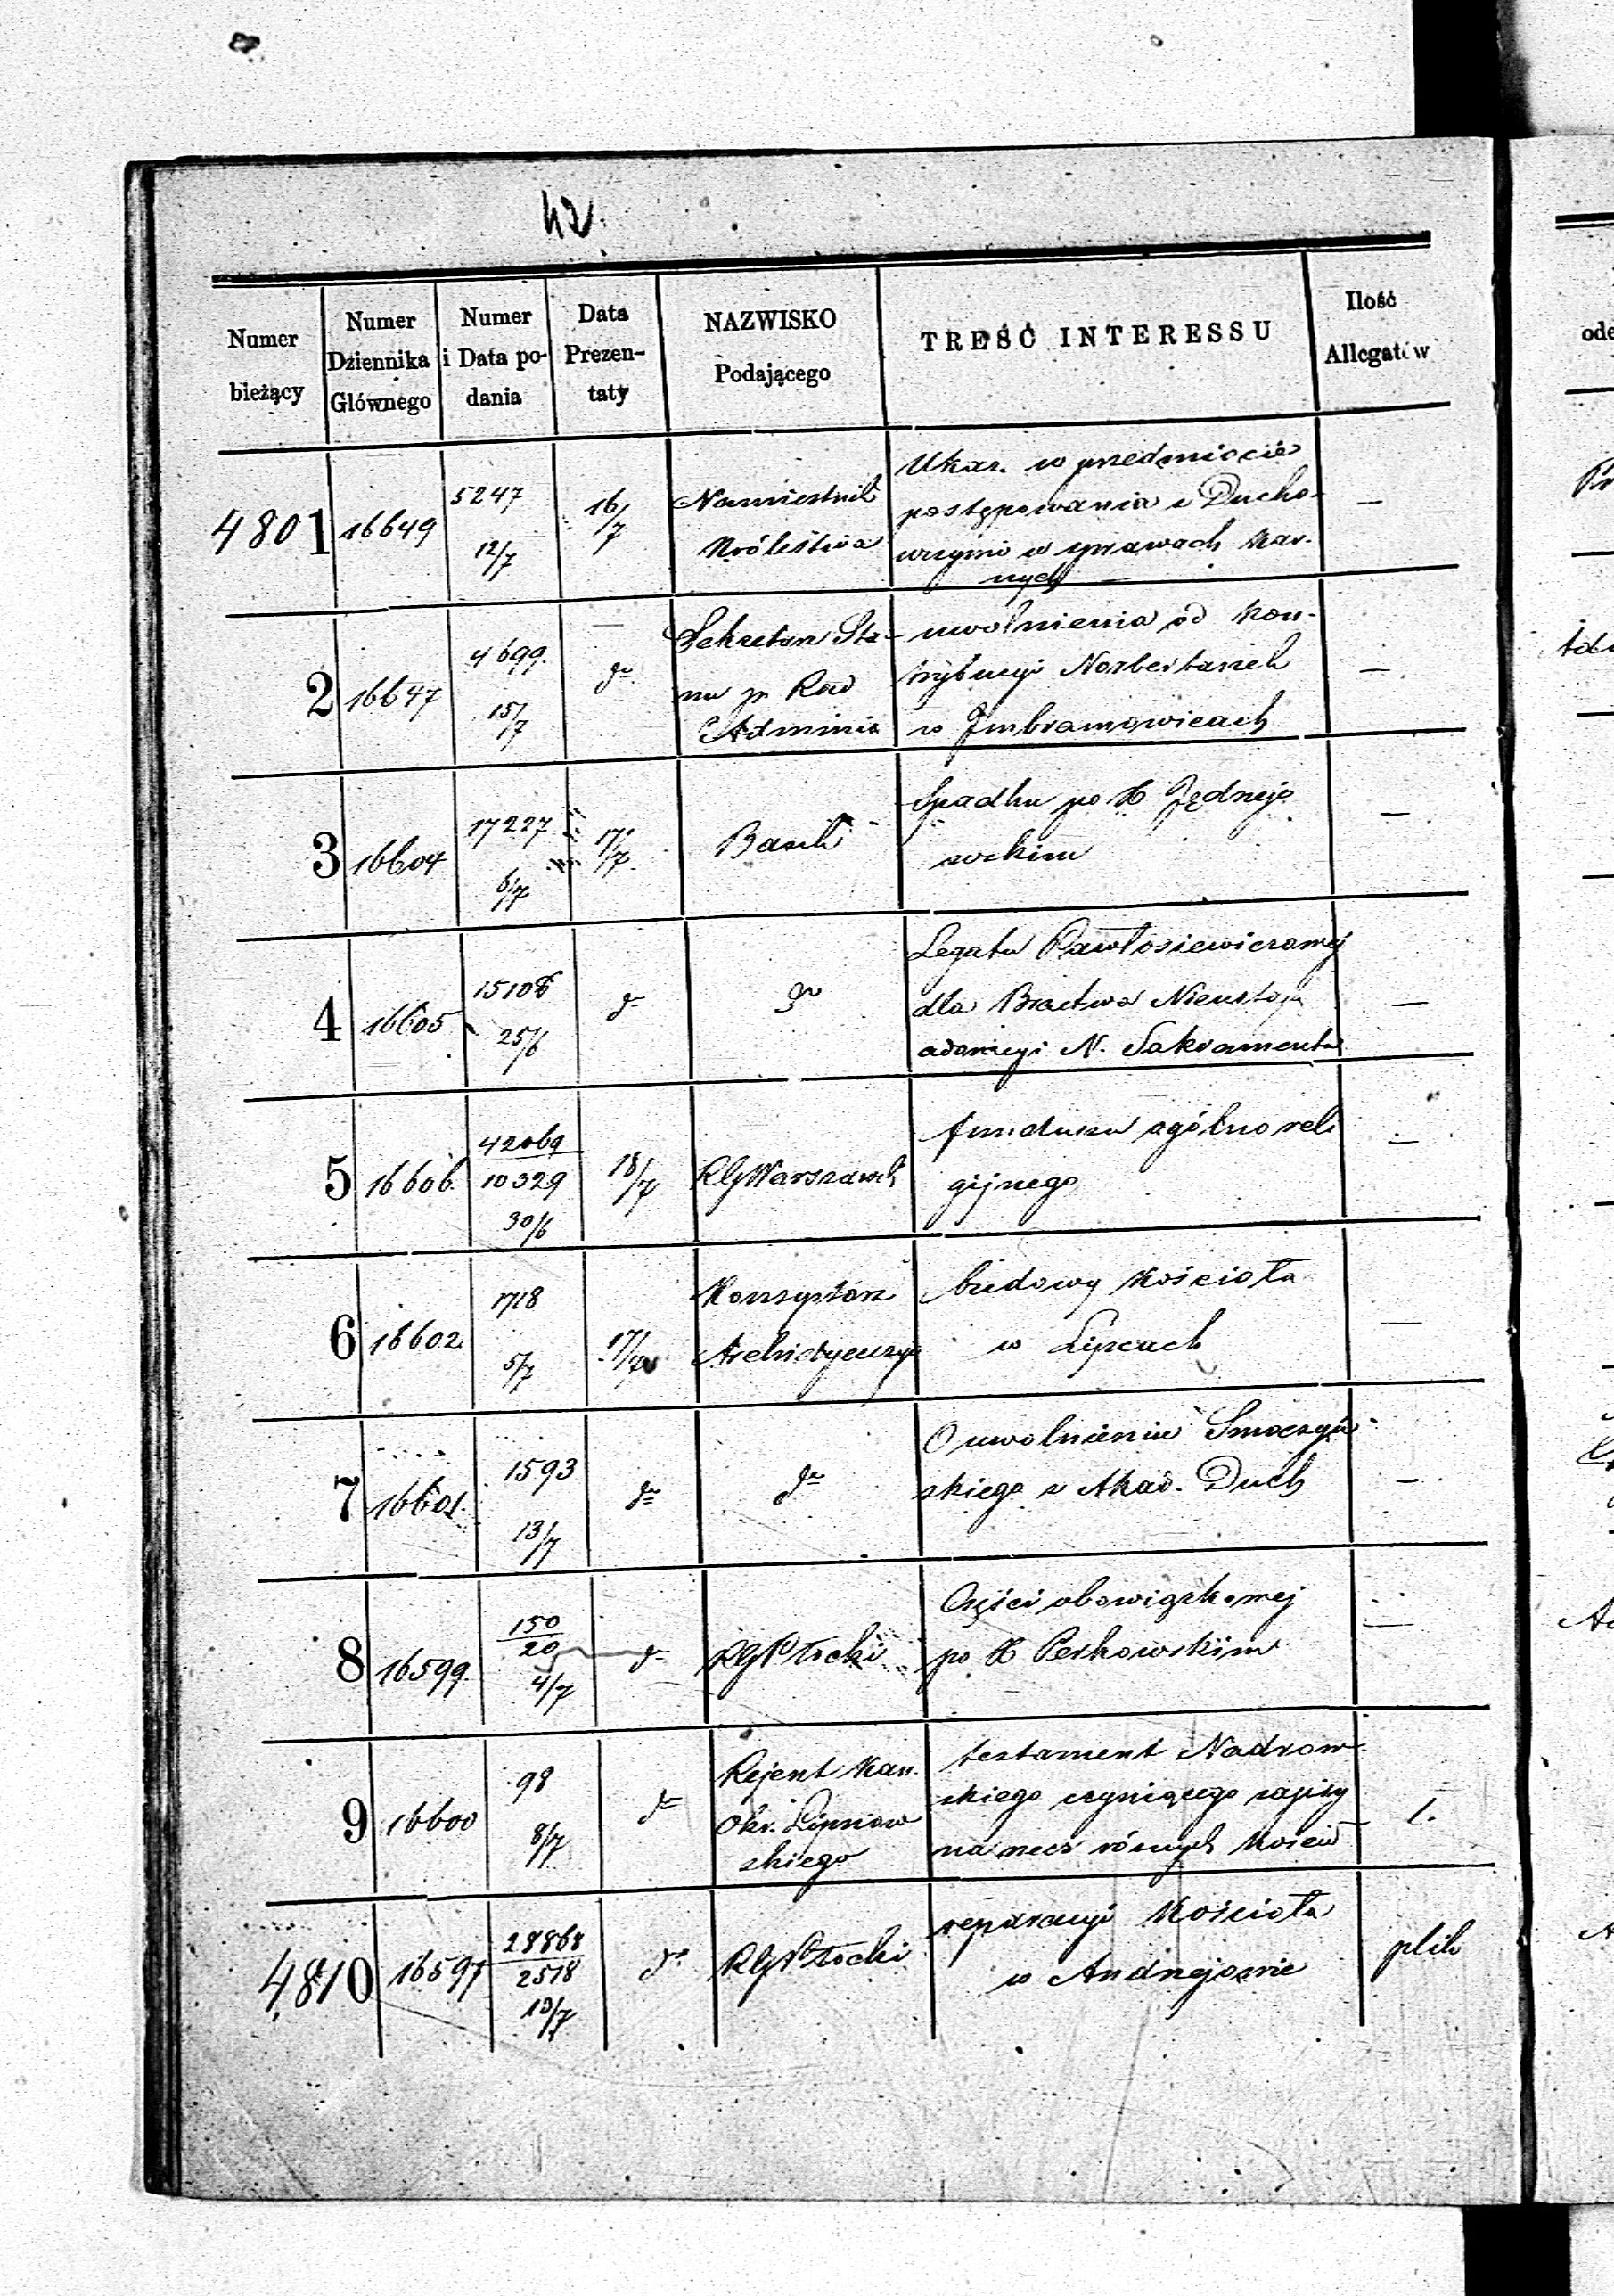 42.
Numer bieżący | Numer Dziennika Głównego | Numer i Data podania | Data Prezentaty | NAZWISKO Podającego | TREŚĆ INTERESSU | Ilość Allegatów
4801 16649 5247 12/7 16/7
Namiestnik
Królestwa
Ukaz. w przedmiocie
postępowania z Ducho-
wnymi w sprawach kar-
nych
—
2 16647 4699 15/7 do
Sekretarz Sta-
nu pr Rad
Adminis
uwolnienia od kon-
trybucyi Norbertanek
w Imbramowicach
—
3 16604 17227 6/7 17/7
Bank
Spadku po X Jędrzejo
wskim
—
4 16605 15108 25/6 do
do
Legatu Pawłosiewiczowej
dla Bractwa Nieustaj
adoracyi N. Sakramentu
—
5 16606 42069
10329
30/6 18/7
RGWarszawsk
funduszu ogólno reli
gijnego
—
6 16602 1718 5/7 17/7
Konsystorz
Archidyecezyi
budowy kościoła
w Lipcach
—
7 16601 1593 13/7 do
do
O uwolnieniu Smoczyń
skiego z Akad. Duch
—
8 16599 150
20
4/7 do
RGPłocki
Części obowiązkowej
po X Perkowskim
—
9 16600 98 8/7 do
Rejent Kan.
Okr. Lipnow
skiego
testament Nadrow
skiego czyniącego zapisy
na rzecz różnych kościo
1.
4810 16597 28868
2518
13/7 do
RGPłocki
reparacyi kościoła
w Andrzejowie
plik
ode